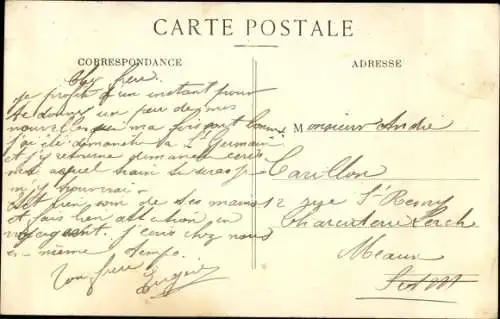 CARTE POSTALE
CORRESPONDANCE
Cher frère.
Je profite d'un instant pour
te donner un peu de mes
nouvelles
j'ai été dimanche à St Germain
et j'y retourne dimanche
quel train tu seras
m'y
soin de tes mains
et fais bien attention en
j'écris chez nous
en même temps.
Ton frère
Eugène
ADRESSE
Monsieur André
Carillon
12 rue St Remy
Charcuterie
Meaux
S et M